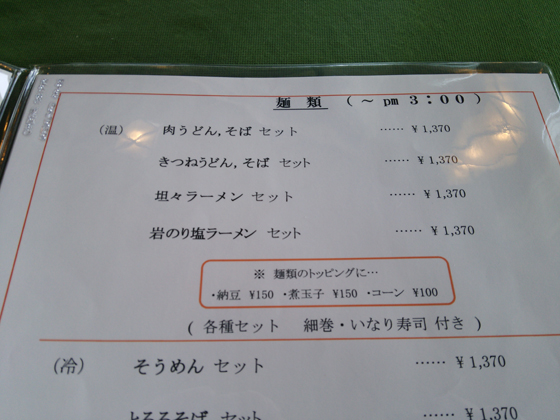 麺 類 （ ～ pm 3：00 ）
（温） 肉うどん,そば セット …… ¥ 1,370
きつねうどん,そば セット …… ¥ 1,370
坦々ラーメン セット …… ¥ 1,370
岩のり塩ラーメン セット …… ¥ 1,370
※ 麺類のトッピングに…
・納豆 ¥150 ・煮玉子 ¥150 ・コーン ¥100
( 各種セット 細巻・いなり寿司 付き )
（冷） そうめん セット …… ¥ 1,370
とろろそば セット …… ¥ 1,370